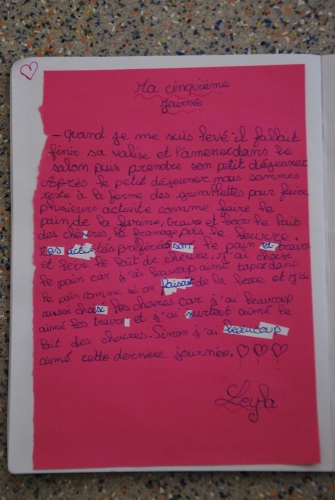 Ma cinquième
Journée
- Quand je me suis levé il fallait
finir sa valise et l'amener dans le
salon puis prendre son petit déjeuner
Après le petit déjeuner nous sommes
resté à la ferme des grenouillettes pour faire
plusieurs activité comme faire le
pain, de la farine, traire et boir le lait
des chèvres, le fromage puis le beurre.
Mes activités préférées sont le pain et traire
et boir le lait de chèvre. J'ai choisi
le pain car j'ai beaucoup aimé taper dans
le pain comme si on faisait de la boxe et j'ai
aussi choisi les chèvres car j'ai beaucoup
aimé les traire et j'ai surtout aimé le
lait des chèvres. Sinon j'ai beaucoup
aimé cette dernière journée.
Leyla